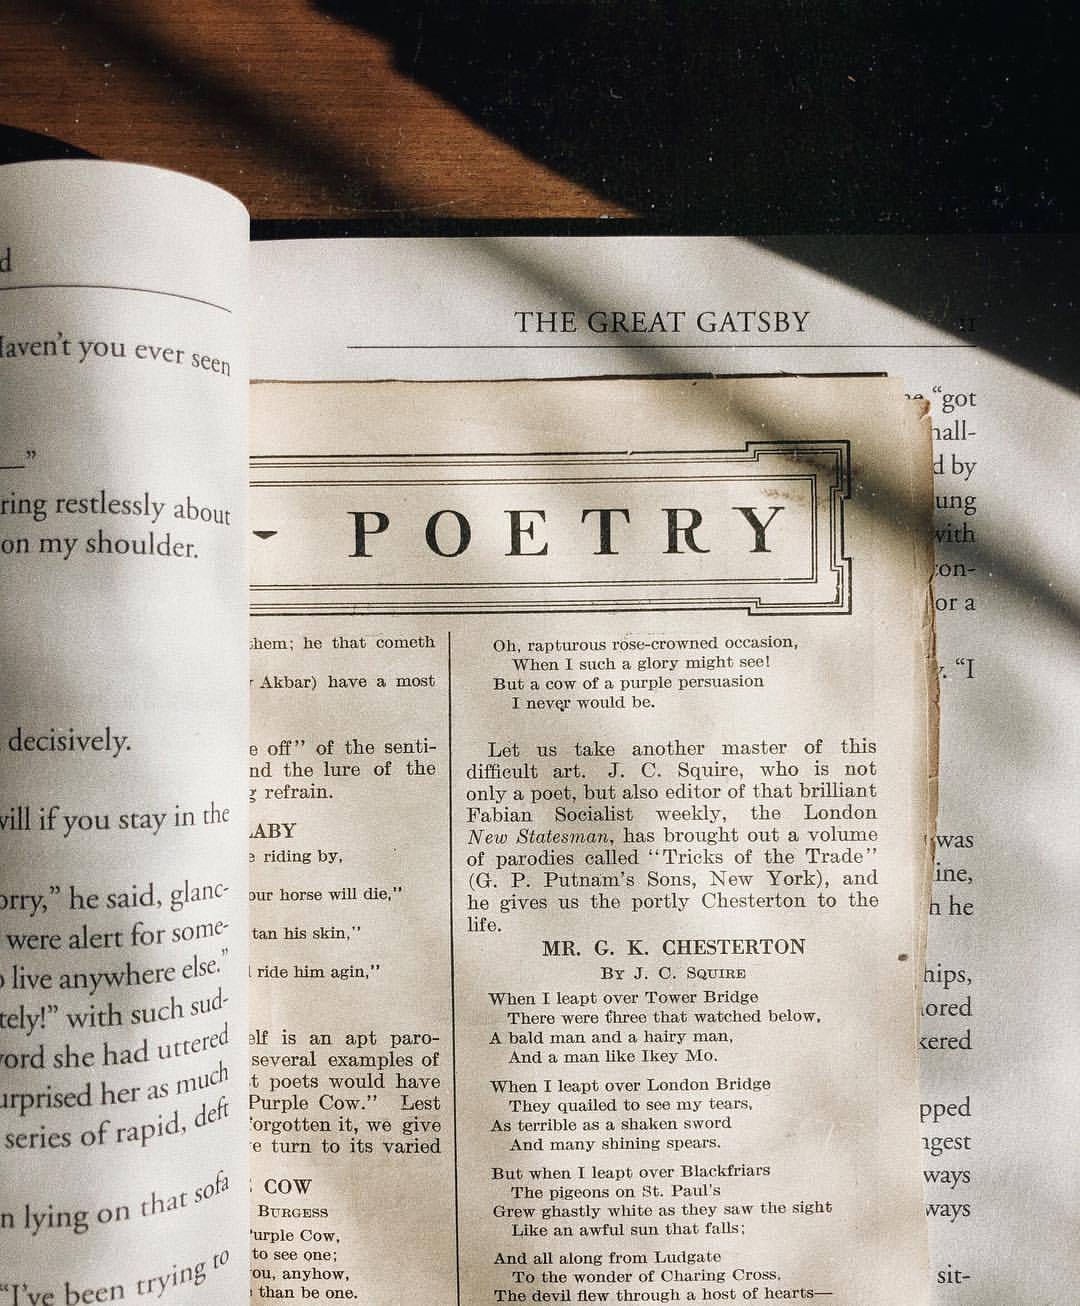 d
aven't you ever seen
—"
ring restlessly about
on my shoulder.
decisively.
will if you stay in the
orry," he said, glanc-
were alert for some-
o live anywhere else."
tely!" with such sud-
word she had uttered
urprised her as much
series of rapid, deft
n lying on that sofa
"I've been trying to
THE GREAT GATSBY 11
"got
hall-
d by
ung
with
con-
or a
"I
was
ine,
n he
hips,
ored
kered
pped
ngest
ways
ways
sit-
- POETRY
hem; he that cometh
Akbar) have a most
e off" of the senti-
nd the lure of the
g refrain.
ABY
e riding by,
our horse will die,"
tan his skin,"
ride him agin,"
elf is an apt paro-
several examples of
t poets would have
Purple Cow." Lest
forgotten it, we give
e turn to its varied
COW
BURGESS
urple Cow,
to see one;
ou, anyhow,
than be one.
Oh, rapturous rose-crowned occasion,
When I such a glory might see!
But a cow of a purple persuasion
I never would be.
Let us take another master of this
difficult art. J. C. Squire, who is not
only a poet, but also editor of that brilliant
Fabian Socialist weekly, the London
New Statesman, has brought out a volume
of parodies called "Tricks of the Trade"
(G. P. Putnam's Sons, New York), and
he gives us the portly Chesterton to the
life.
MR. G. K. CHESTERTON
BY J. C. SQUIRE
When I leapt over Tower Bridge
There were three that watched below,
A bald man and a hairy man,
And a man like Ikey Mo.
When I leapt over London Bridge
They quailed to see my tears,
As terrible as a shaken sword
And many shining spears.
But when I leapt over Blackfriars
The pigeons on St. Paul's
Grew ghastly white as they saw the sight
Like an awful sun that falls;
And all along from Ludgate
To the wonder of Charing Cross,
The devil flew through a host of hearts—